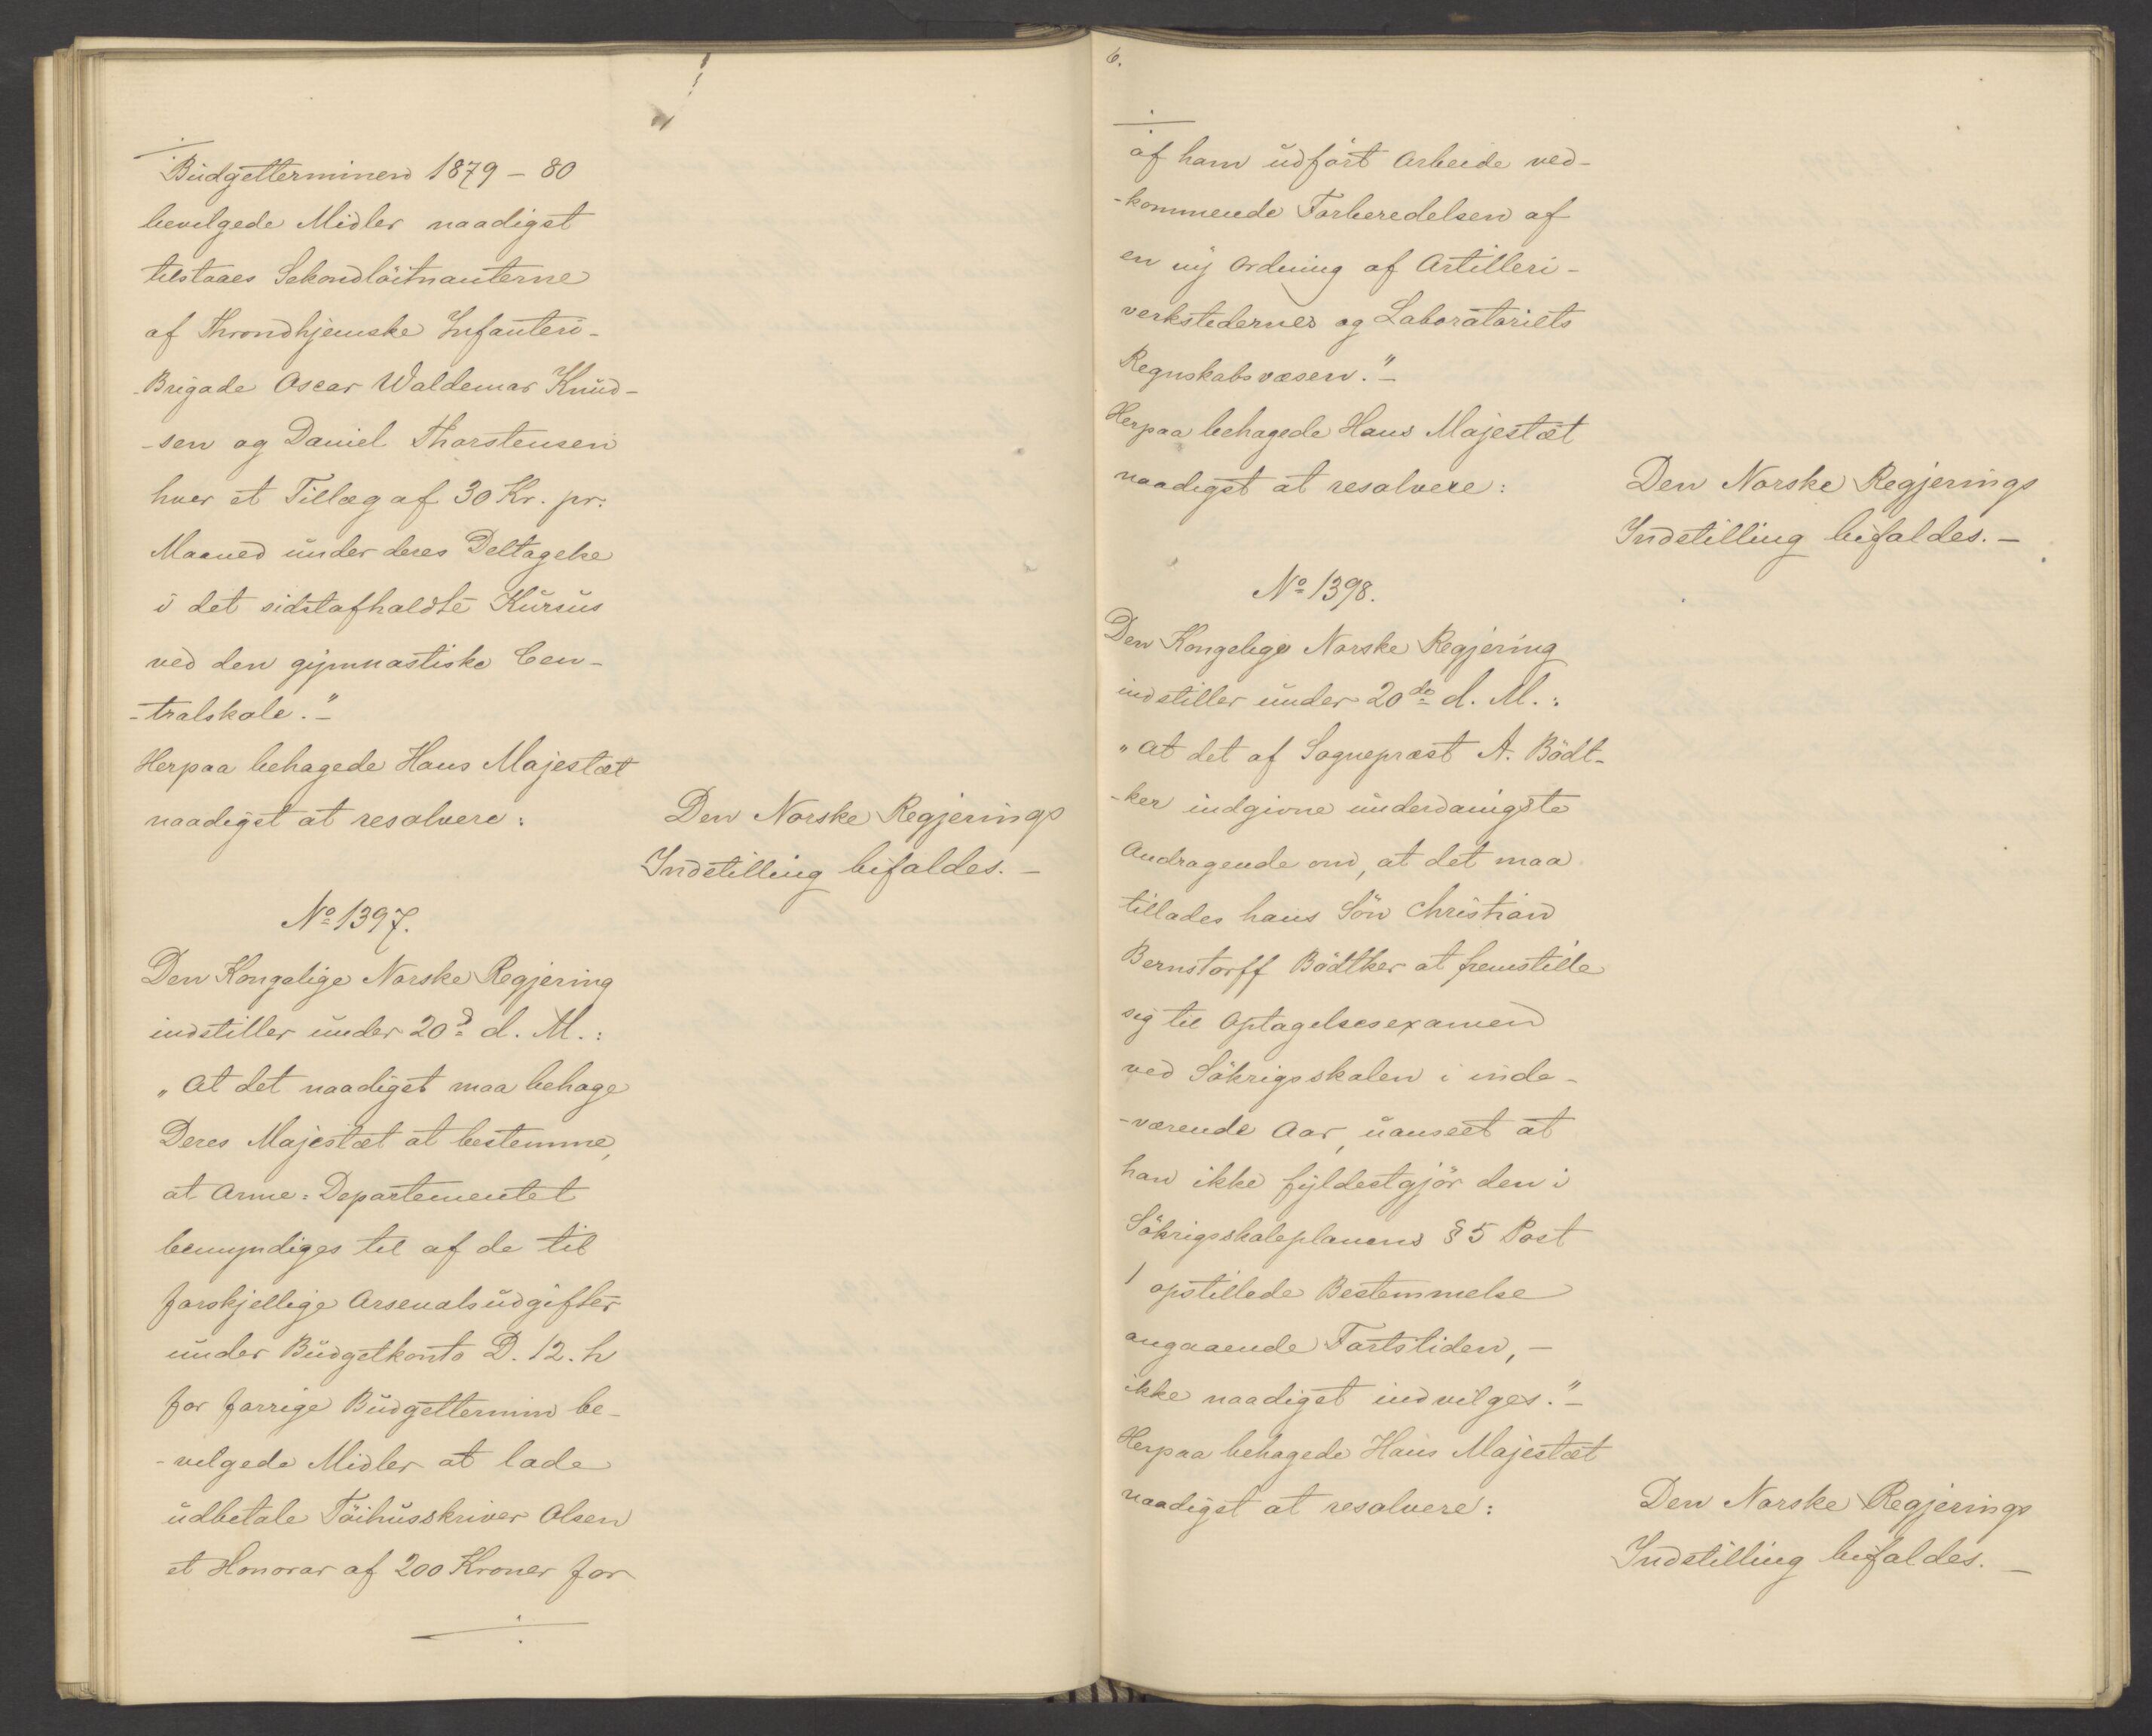 Budgetterminen 1879 – 80
bevilgede Midler naadigst
tilstaaes Sekondlöitnanterne
af Throndhjemske Infanteri-
-Brigade Oscar Waldemar Knud-
-sen og Daniel Thorstensen
hver et Tillæg af 30 Kr. pr.
Maaned under deres Deltagelse
i det sidstafholdte Kursus
ved den gymnastiske Cen-
-tralskole."–
Herpaa behagede Hans Majestæt
naadigst at resolvere:
Den Norske Regjerings
Indstilling bifaldes. –
No 1397.
Den Kongelige Norske Regjering
indstiller under 20d d. M.:
„At det naadigst maa behage
Deres Majestæt at bestemme,
at Arme=Departementet
bemyndiges til af de til
forskjellige Arsenalsudgifter
under Budgetkonto D. 12. h
for forrige Budgettermin be-
-vilgede Midler at lade
udbetale Töihusskriver Olsen
et Honorar af 200 Kroner for
6.
af ham udfört Arbeide ved-
-kommende Forberedelsen af
en ny Ordning af Artilleri-
verkstedernes og Laboratoriets
Regnskabsvæsen."–
Herpaa behagede Hans Majestæt
naadigst at resolvere:
Den Norske Regjerings
Indstilling bifaldes. –
No 1398.
Den Kongelige Norske Regjering
indstiller under 20de d. M.:
„At det af Sognepræst A. Bödt-
-ker indgivne underdanigste
Andragende om, at det maa
tillades hans Sön Christian
Bernstorff Bödtker at fremstille
sig til Optagelsesexamen
ved Sökrigsskolen i inde-
-værende Aar, uanseet at
han ikke fyldestgjör den i
Sökrigsskoleplanens § 5 Post
1 opstillede Bestemmelse
angaaende Fartstiden, –
ikke naadigst indvilges."–
Herpaa behagede Hans Majestæt
naadigst at resolvere:
Den Norske Regjerings
Indstilling bifaldes. –